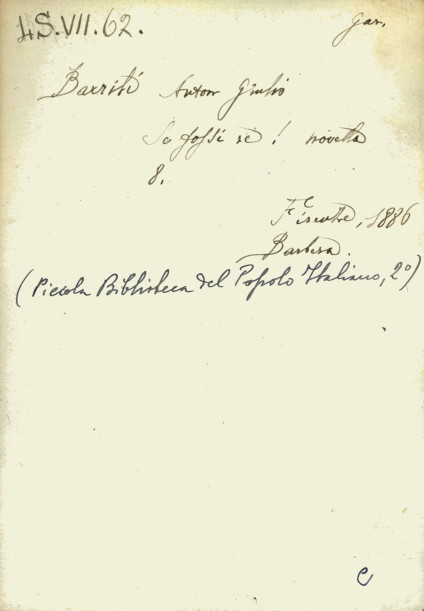 4S.VII.62.
Gar.
Barrili Anton Giulio
Se fossi re! novella
8.
Firenze, 1886
Barbera.
(Piccola Biblioteca del Popolo Italiano, 2°)
C